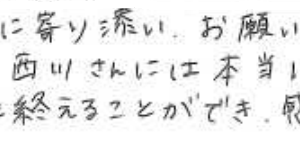 に寄り添い、お願い
西川さんには本当
終えることができ、感